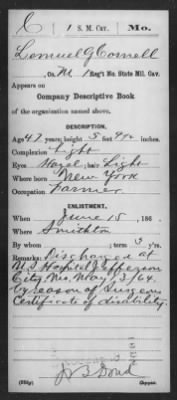 C | 1 S. M. Cav. | Mo.
Lemuel G Cornell
, Co. M, 1 Reg't No. State Mil. Cav.
Appears on
Company Descriptive Book
of the organization named above.
DESCRIPTION.
Age 47 years; height 5 feet 9½ inches.
Complexion Light
Eyes Hazel; hair Light
Where born New York
Occupation Farmer
ENLISTMENT.
When June 15, 186 .
Where Smithton
By whom ; term 3 y'rs.
Remarks: Discharged at
U.S. Hospital Jefferson
City, Mo. May 13/64.
by reason of Surgeons
Certificate of disability
J B Bond
Copyist.